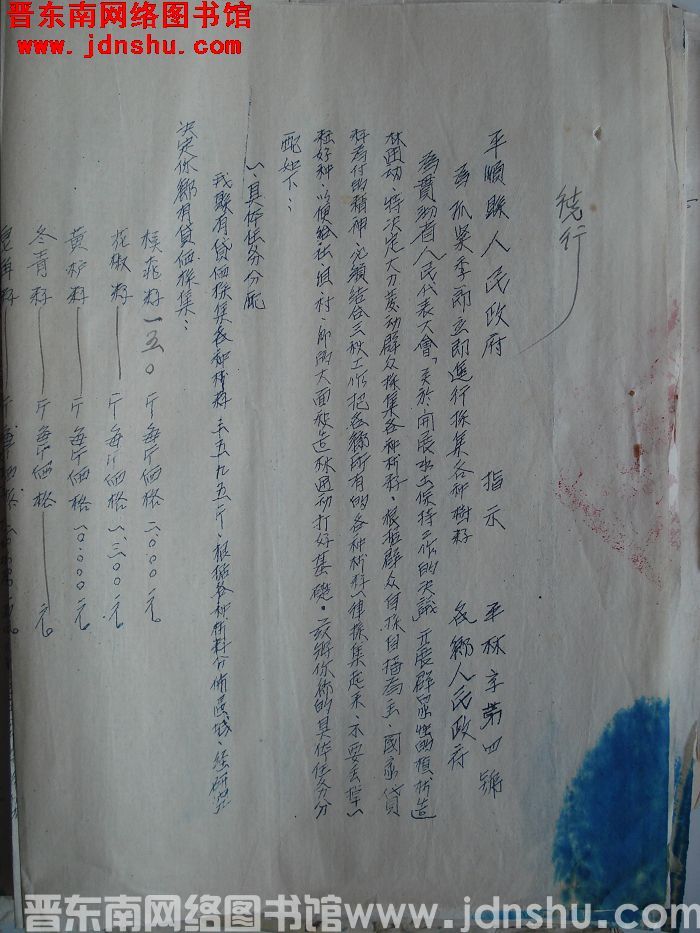 晋东南网络图书馆
www.jdnshu.com
平順縣人民政府 指示 平林字第四號
為抓緊季節立即進行採集各种樹籽 各鄉人民政府
為貫彻省人民代表大會「关於開展水土保持工作的決議」开展群众性的植树造
林运动，特決定大力发动群众採集各种树籽，根据群众自採自播為主，國家貸
料為付的精神，必須結合三秋工作把各鄉所有的各种树籽一律採集起来，不要丢掉一
粒好种，以便給社但村、鄉的大面积造林运动打好基礎。茲將你鄉的具体任务分
配如下：
一、具体任务分配
我縣有貸価採集各种树籽三五九五斤，根据各种树料分佈區域，經研究
決定你鄉有貸価採集：
核桃籽一五〇斤每斤価格二、〇〇〇元
花椒籽——斤每斤価格一、三〇〇元
黃栌籽——斤每斤価格一〇、〇〇〇元
冬青籽——斤每斤価格——元
晋东南网络图书馆 www.jdnshu.com